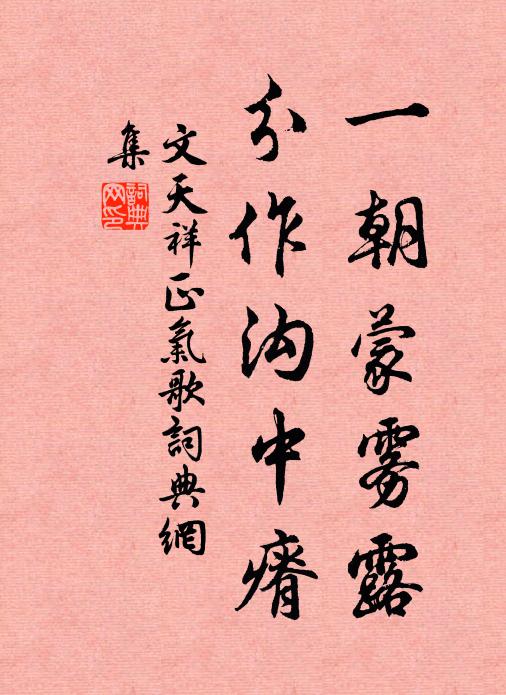 一朝蒙雾露
分作沟中瘠
文天祥正氣歌詞典網
集
詞典
网印